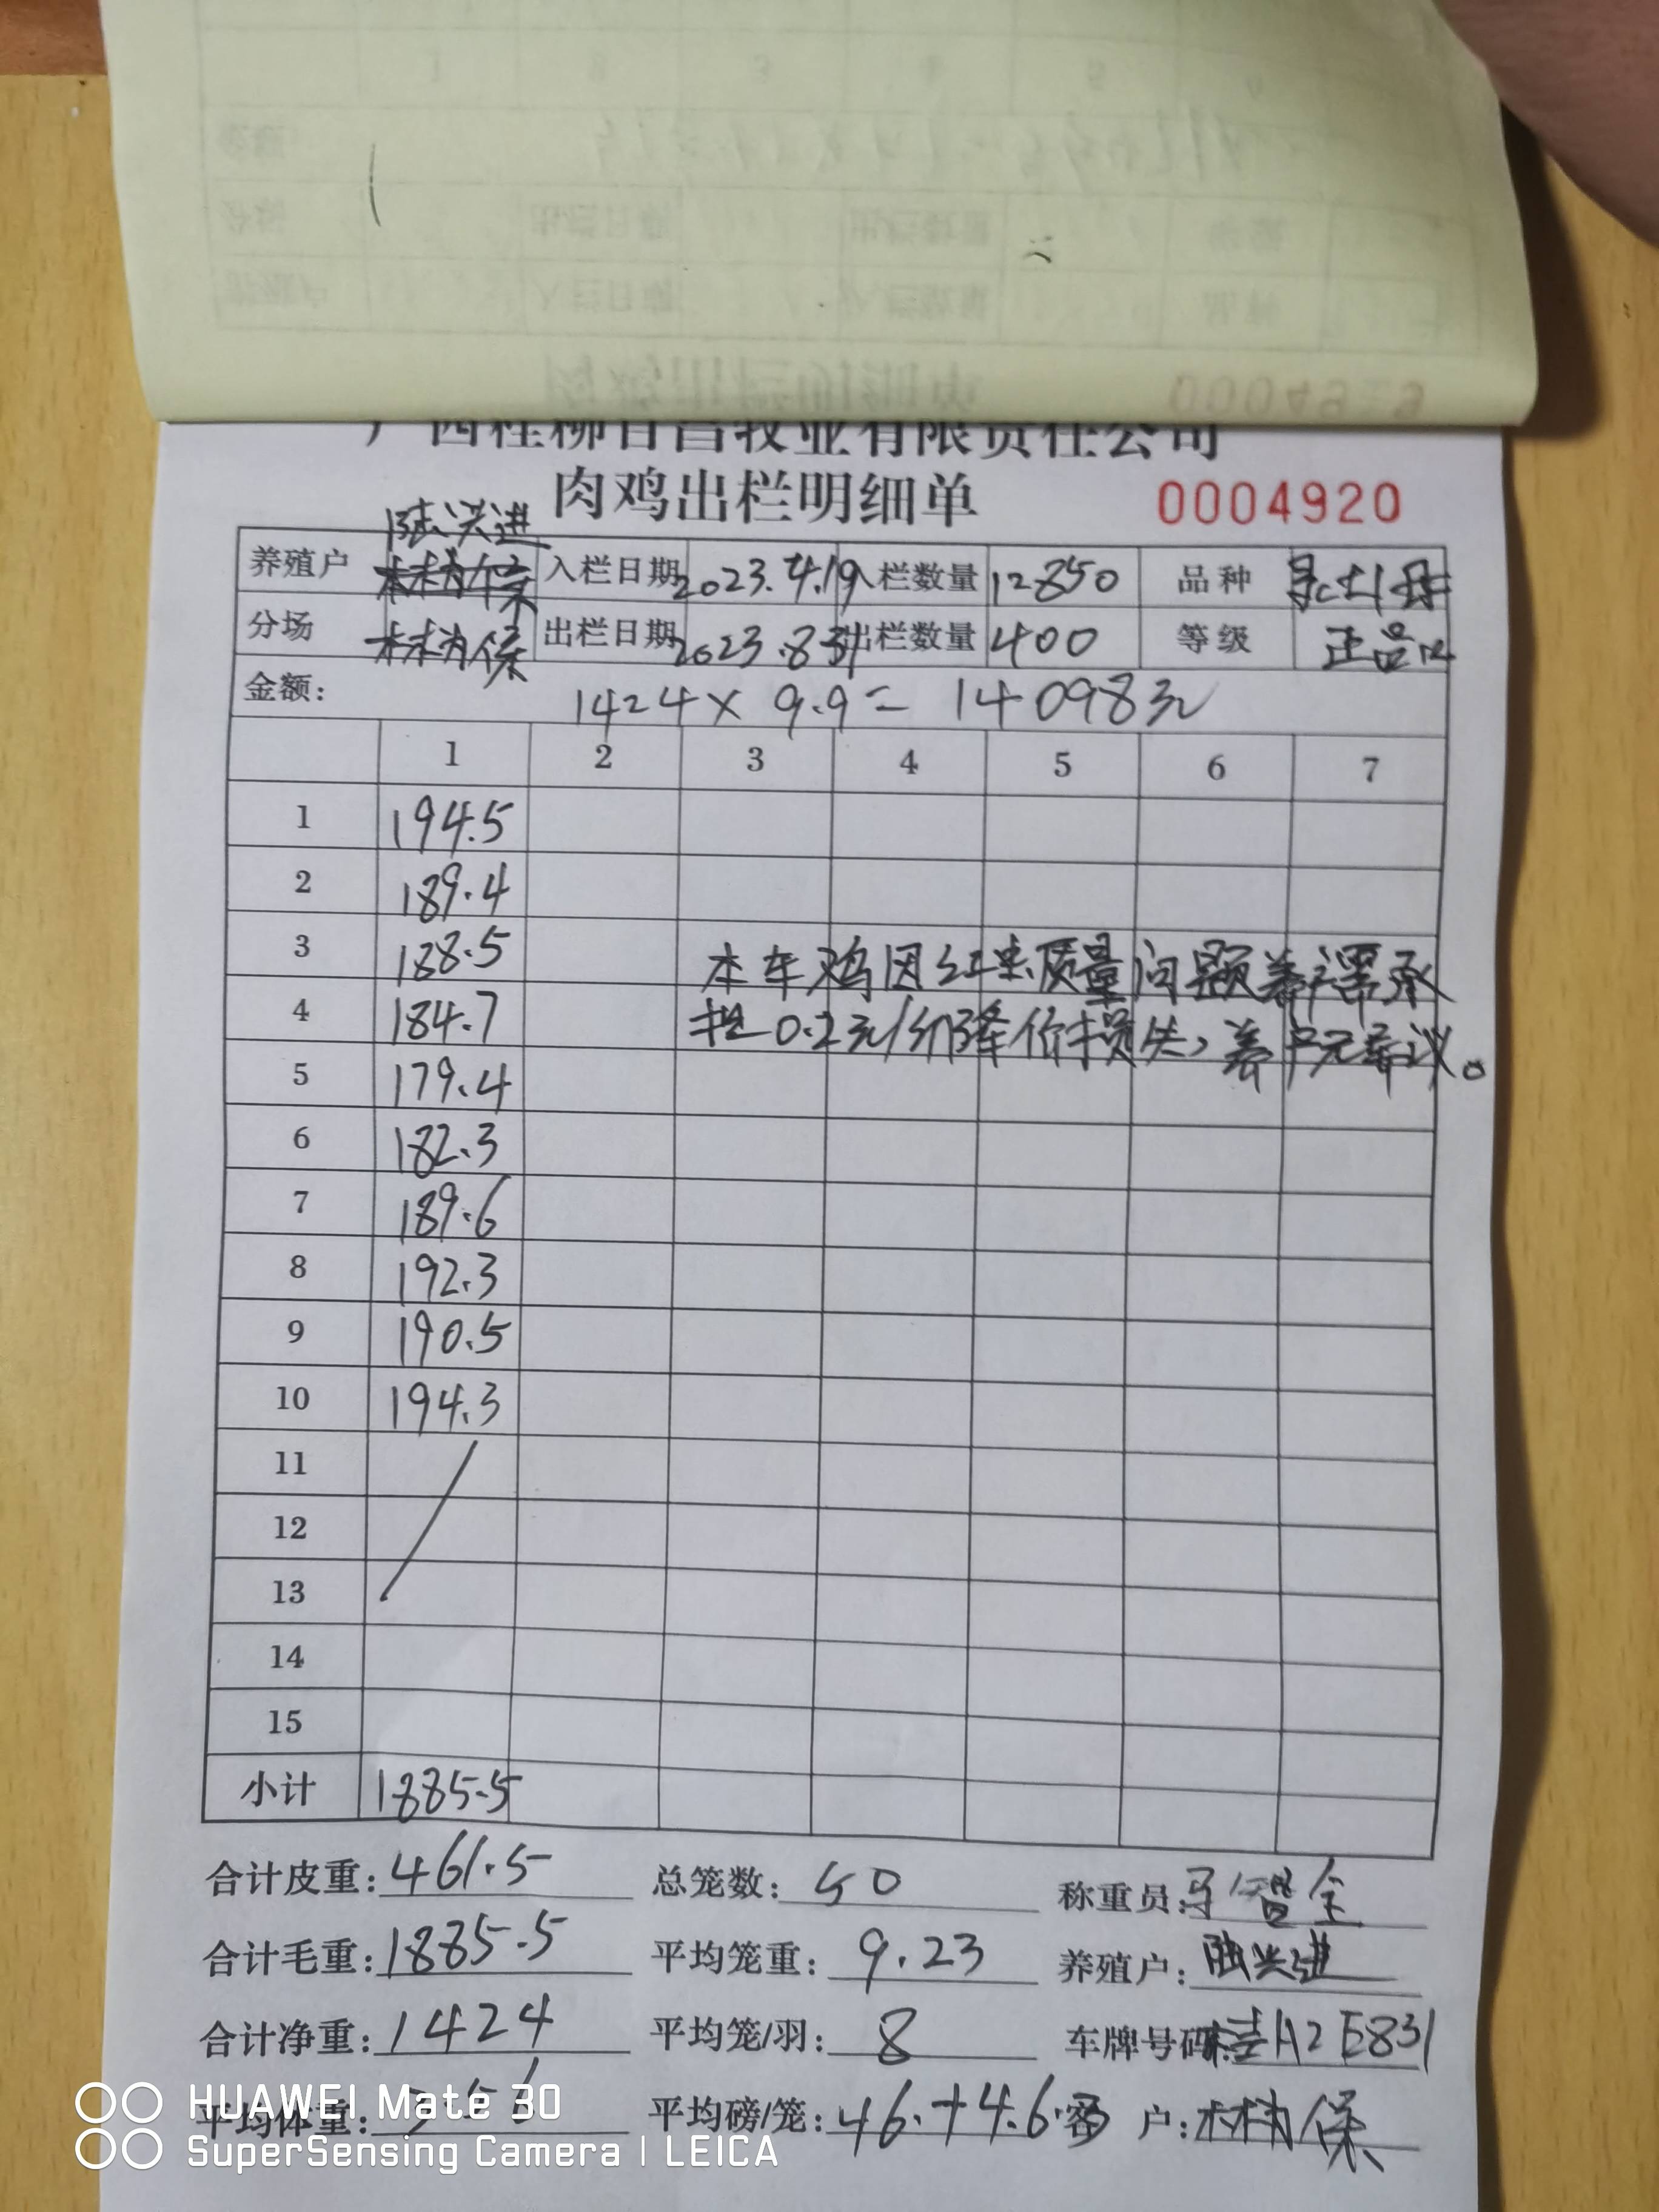 0004929
广西桂柳百昌牧业有限责任公司
肉鸡出栏明细单 0004920
陆兴进
养殖户 林为保 入栏日期 2023.4.19 入栏数量 12850 品种
分场 林为保 出栏日期 2023.8.31 出栏数量 400 等级 正品
金额: 1424 × 9.9 = 14098元
1 2 3 4 5 6 7
1 194.5
2 189.4
3 188.5 本车鸡因 质量问题养户需承
4 184.7 担0.2元/斤降价损失,养户无异议。
5 179.4
6 182.3
7 189.6
8 192.3
9 190.5
10 194.3
11
12
13
14
15
小计 1885.5
合计皮重: 461.5 总笼数: 50 称重员: 智全
合计毛重: 1885.5 平均笼重: 9.23 养殖户: 陆兴进
合计净重: 1424 平均笼/羽: 8 车牌号码: 桂A2E831
平均体重: 3.56 平均磅/笼: 46.+4.6. 客户: 林为保
HUAWEI Mate 30
SuperSensing Camera | LEICA